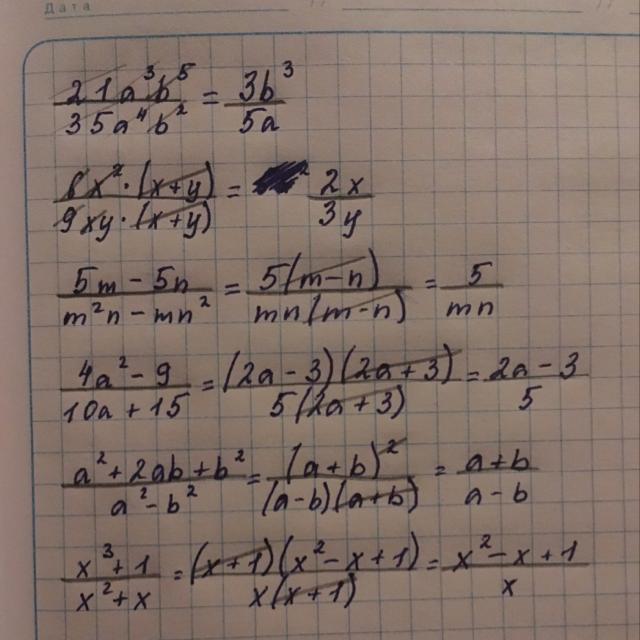 Дата
21a³b⁵/35a⁴b² = 3b³/5a
8x²·(x+y)/9xy·(x+y) = 2x/3y
5m − 5n/m²n − mn² = 5(m−n)/mn(m−n) = 5/mn
4a² − 9/10a + 15 = (2a − 3)(2a + 3)/5(2a + 3) = 2a − 3/5
a² + 2ab + b²/a² − b² = (a + b)²/(a−b)(a+b) = a + b/a − b
x³ + 1/x² + x = (x+1)(x² − x + 1)/x(x+1) = x² − x + 1/x